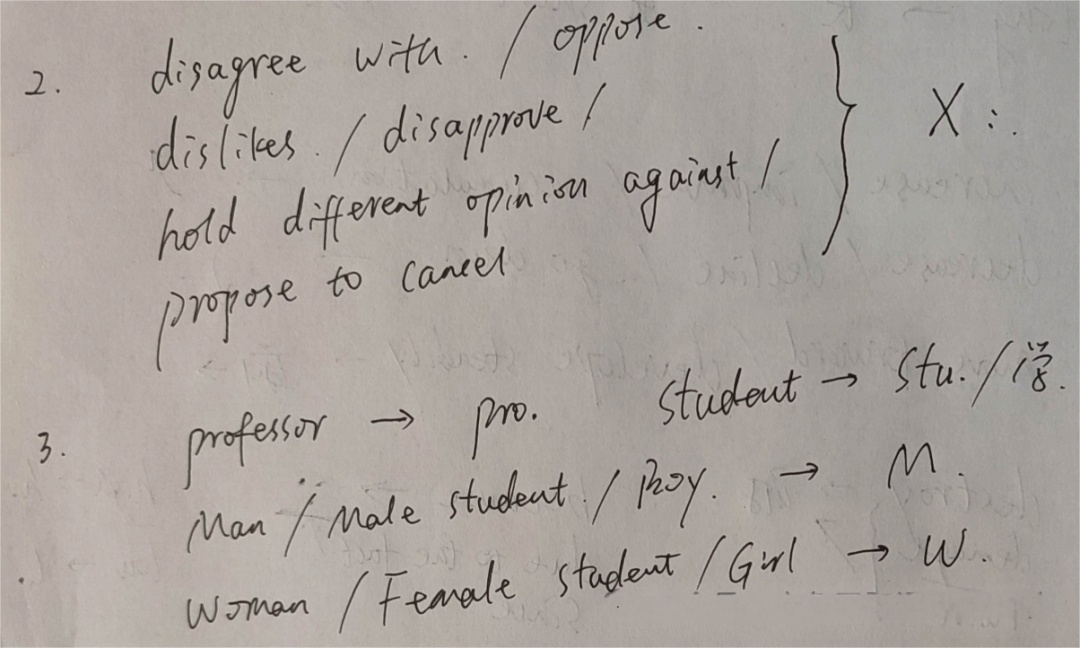 2. disagree with. / oppose.
dislikes. / disapprove /
hold different opinion against /
propose to cancel
} X :.
3. professor → pro. student → stu. /
Man / Male student. / Boy. → M.
Woman / Female student / Girl → W.